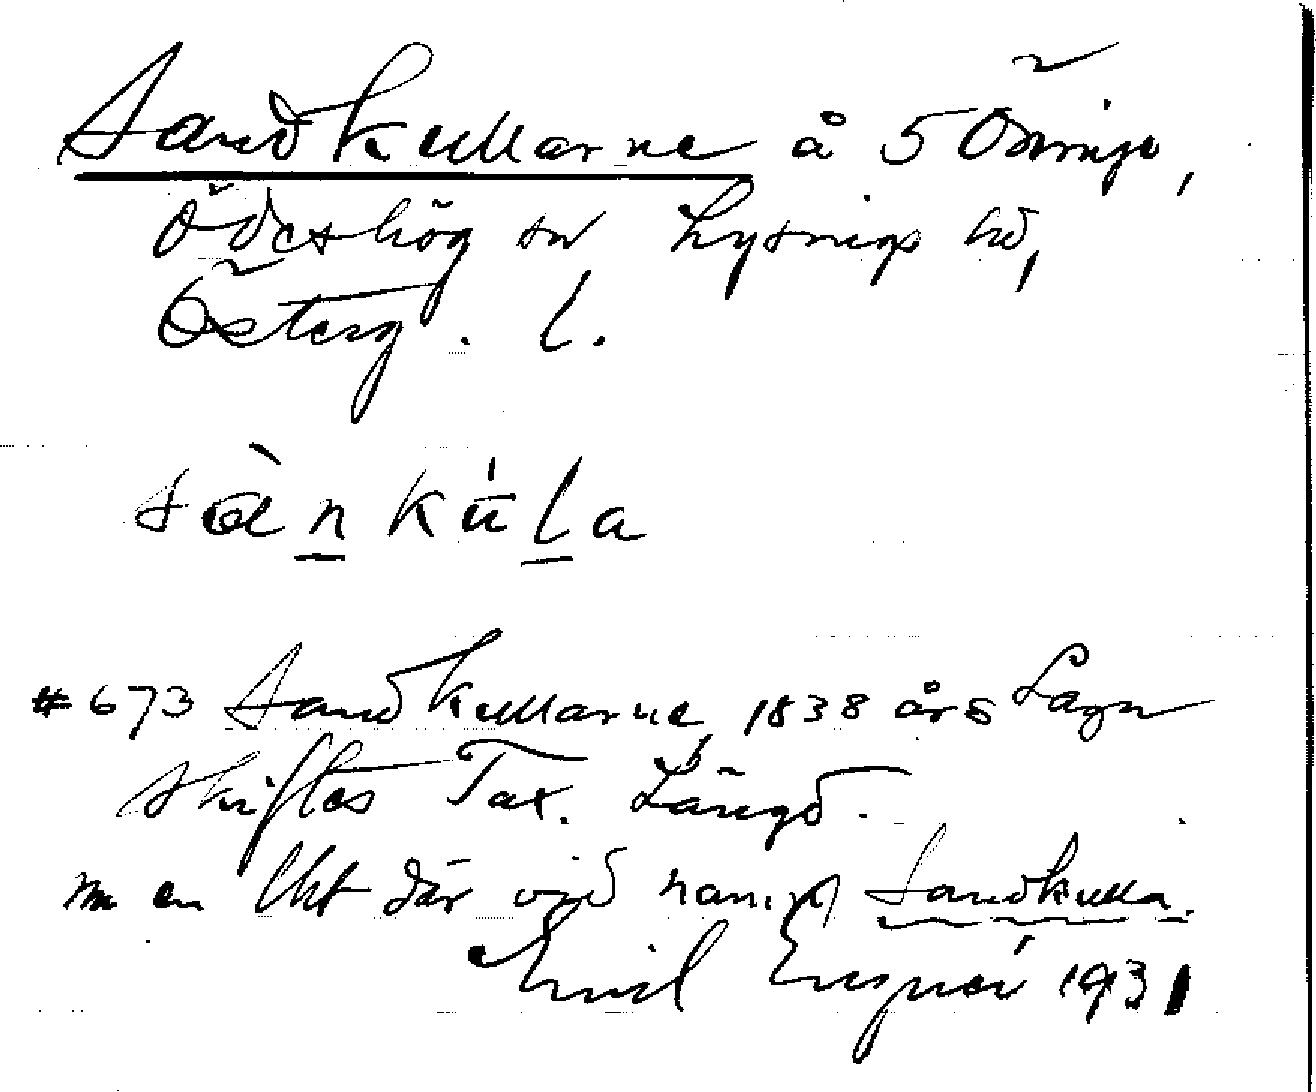 Sandkullarne å 5 Önninge,
Ödeshög sn Lysings hd,
Österg. l.
sànkùla
# 673 Sandkullarne, 1838 års Laga
skiftes Tax. Längd.
nu en lht där vid namn Sandkulla.
Emil Engnér 1931